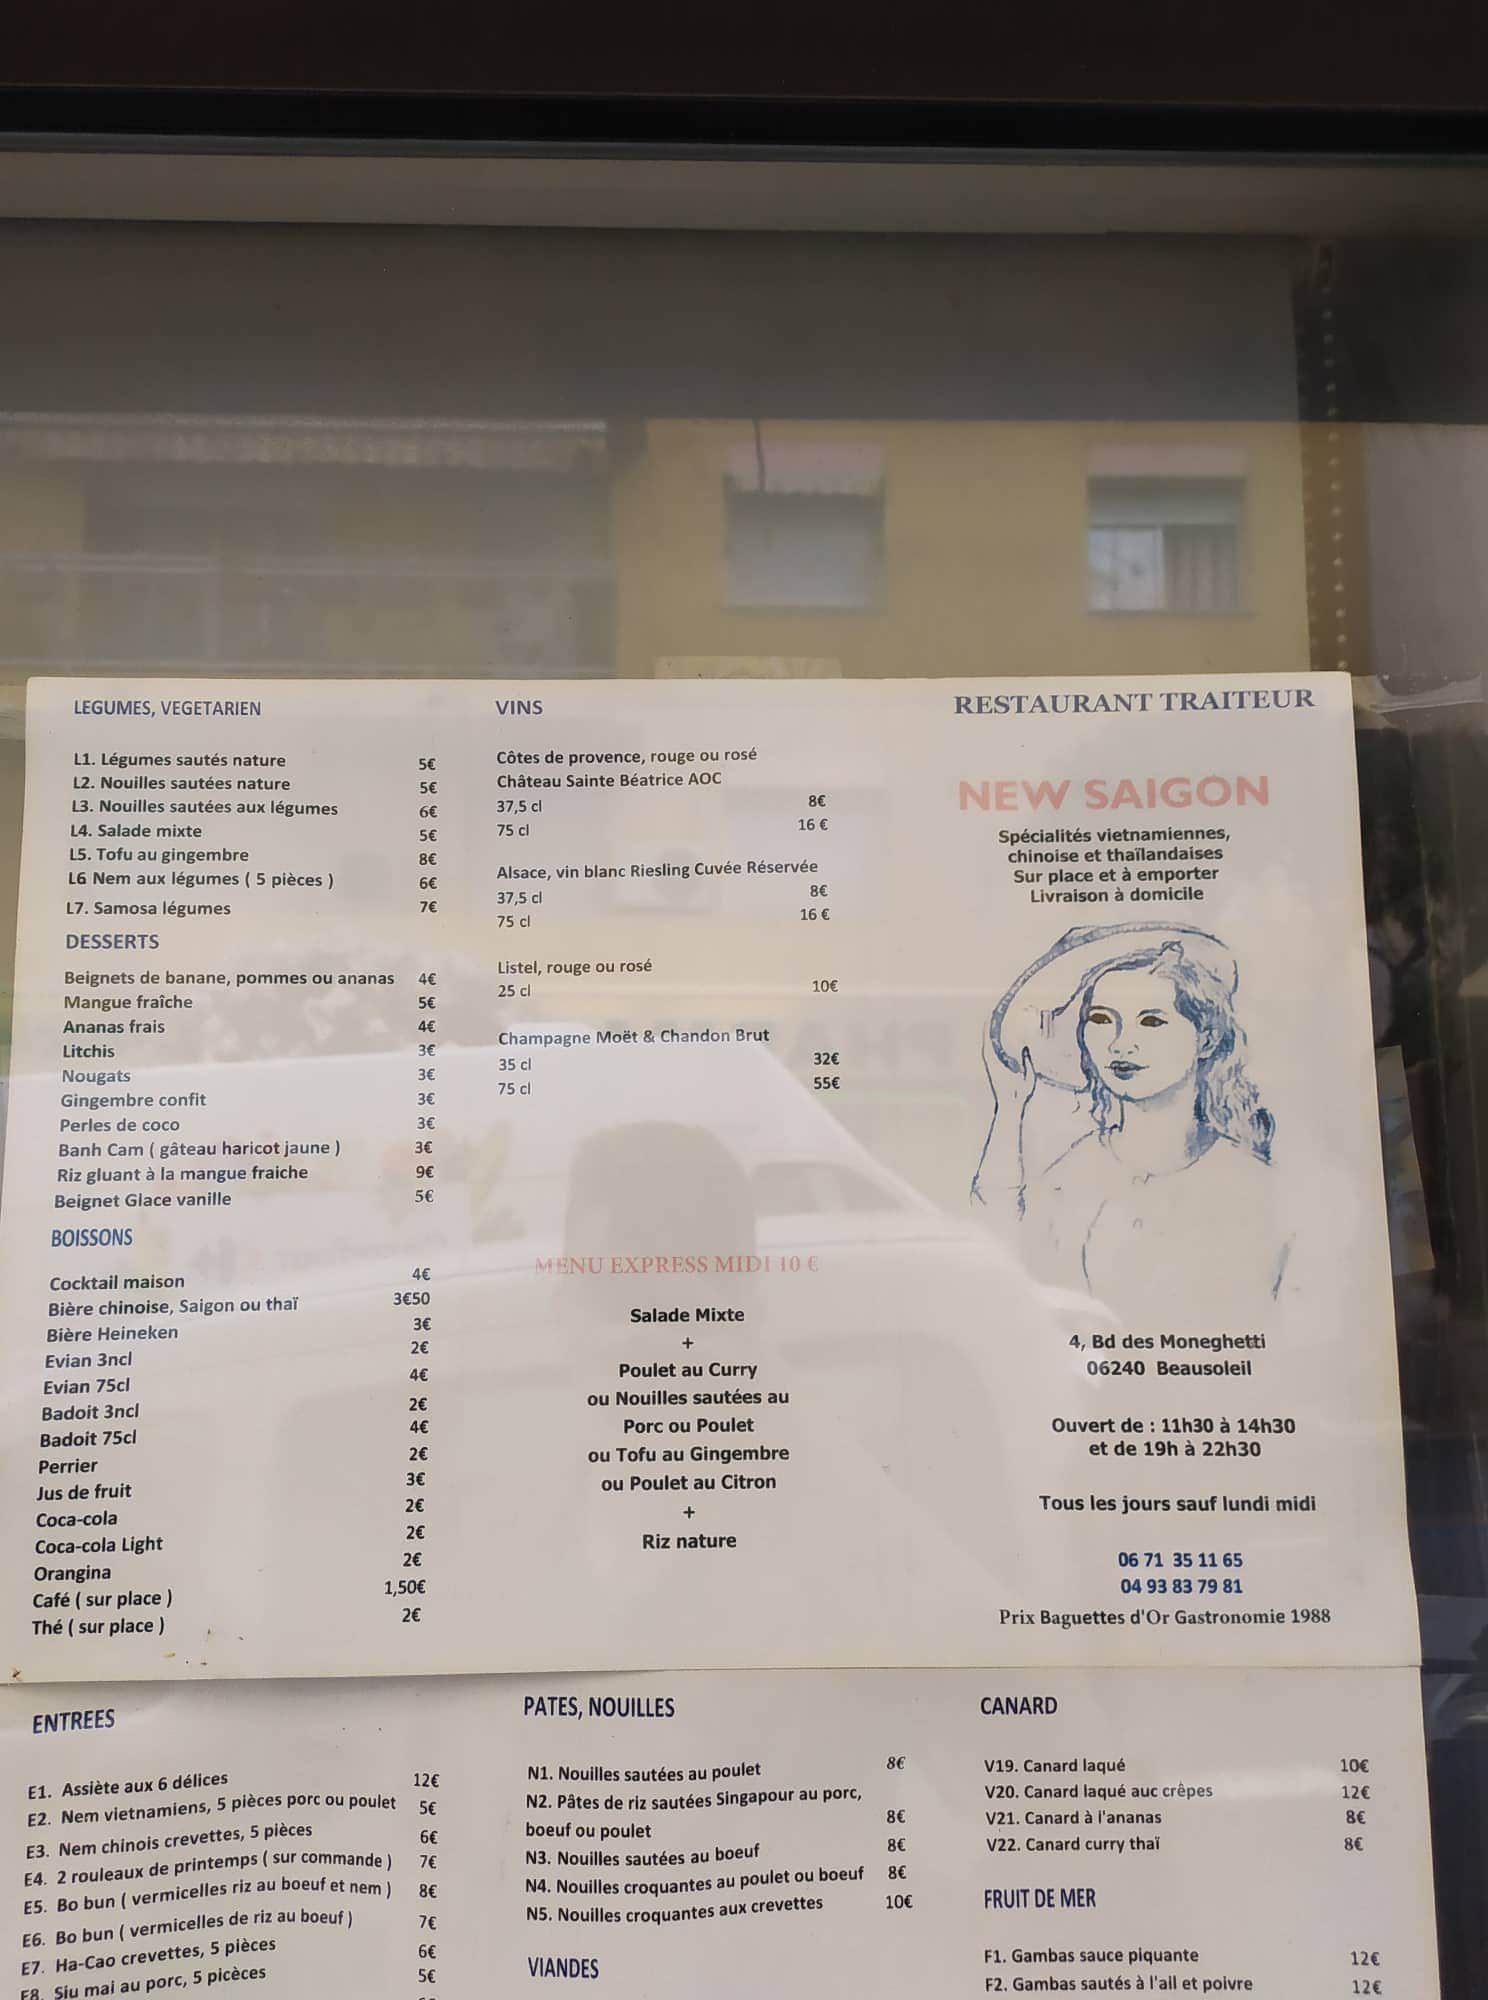 LEGUMES, VEGETARIEN
L1. Légumes sautés nature 5€
L2. Nouilles sautées nature 5€
L3. Nouilles sautées aux légumes 6€
L4. Salade mixte 5€
L5. Tofu au gingembre 8€
L6 Nem aux légumes ( 5 pièces ) 6€
L7. Samosa légumes 7€
DESSERTS
Beignets de banane, pommes ou ananas 4€
Mangue fraîche 5€
Ananas frais 4€
Litchis 3€
Nougats 3€
Gingembre confit 3€
Perles de coco 3€
Banh Cam ( gâteau haricot jaune ) 3€
Riz gluant à la mangue fraiche 9€
Beignet Glace vanille 5€
BOISSONS
Cocktail maison 4€
Bière chinoise, Saigon ou thaï 3€50
Bière Heineken 3€
Evian 3ncl 2€
Evian 75cl 4€
Badoit 3ncl 2€
Badoit 75cl 4€
Perrier 2€
Jus de fruit 3€
Coca-cola 2€
Coca-cola Light 2€
Orangina 2€
Café ( sur place ) 1,50€
Thé ( sur place ) 2€
VINS
Côtes de provence, rouge ou rosé
Château Sainte Béatrice AOC
37,5 cl 8€
75 cl 16 €
Alsace, vin blanc Riesling Cuvée Réservée
37,5 cl 8€
75 cl 16 €
Listel, rouge ou rosé
25 cl 10€
Champagne Moët & Chandon Brut
35 cl 32€
75 cl 55€
MENU EXPRESS MIDI 10 €
Salade Mixte
+
Poulet au Curry
ou Nouilles sautées au
Porc ou Poulet
ou Tofu au Gingembre
ou Poulet au Citron
+
Riz nature
RESTAURANT TRAITEUR
NEW SAIGON
Spécialités vietnamiennes,
chinoise et thaïlandaises
Sur place et à emporter
Livraison à domicile
4, Bd des Moneghetti
06240 Beausoleil
Ouvert de : 11h30 à 14h30
et de 19h à 22h30
Tous les jours sauf lundi midi
06 71 35 11 65
04 93 83 79 81
Prix Baguettes d'Or Gastronomie 1988
ENTREES
E1. Assiète aux 6 délices 12€
E2. Nem vietnamiens, 5 pièces porc ou poulet 5€
E3. Nem chinois crevettes, 5 pièces 6€
E4. 2 rouleaux de printemps ( sur commande ) 7€
E5. Bo bun ( vermicelles riz au boeuf et nem ) 8€
E6. Bo bun ( vermicelles de riz au boeuf ) 7€
E7. Ha-Cao crevettes, 5 pièces 6€
E8. Siu mai au porc, 5 picèces 5€
PATES, NOUILLES
N1. Nouilles sautées au poulet 8€
N2. Pâtes de riz sautées Singapour au porc,
boeuf ou poulet 8€
N3. Nouilles sautées au boeuf 8€
N4. Nouilles croquantes au poulet ou boeuf 8€
N5. Nouilles croquantes aux crevettes 10€
VIANDES
CANARD
V19. Canard laqué 10€
V20. Canard laqué auc crêpes 12€
V21. Canard à l'ananas 8€
V22. Canard curry thaï 8€
FRUIT DE MER
F1. Gambas sauce piquante 12€
F2. Gambas sautés à l'ail et poivre 12€